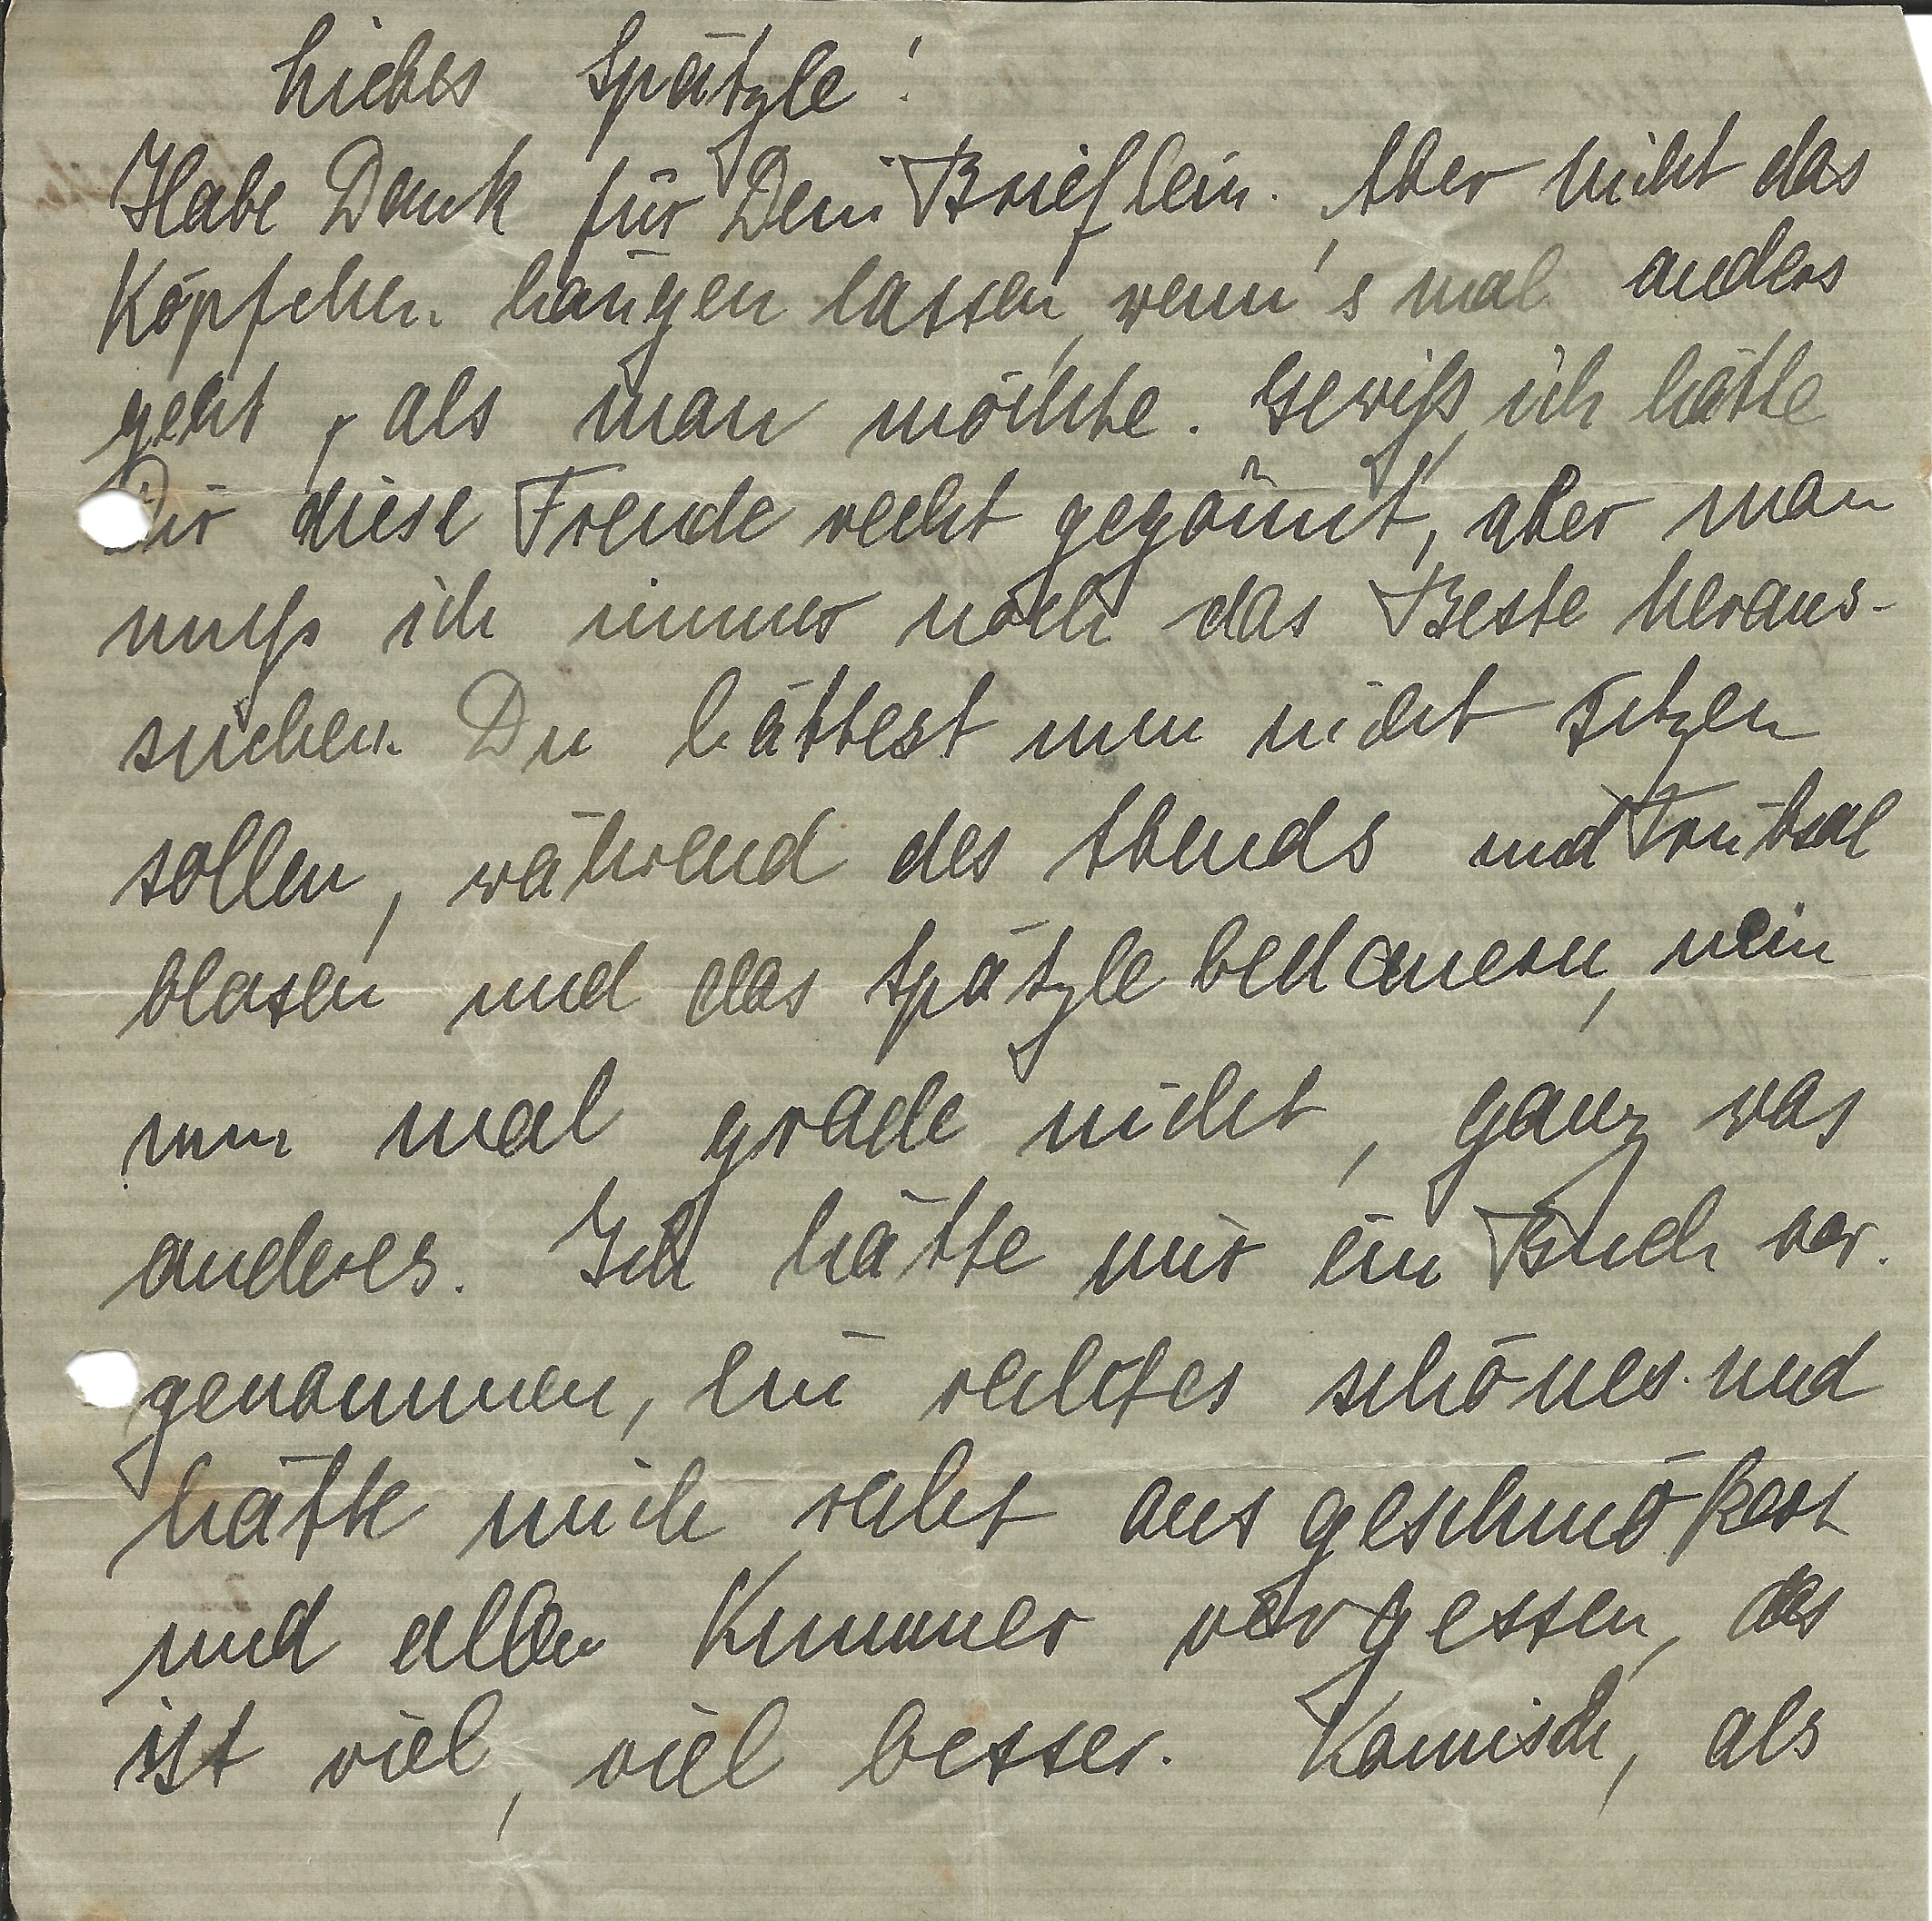 Liebes Spätzle!
Habe Dank für Dein Brieflein. Aber nicht das
Köpfchen hängen lassen, wenn's mal anders
geht, als man möchte. Gewiß, ich hätte
Dir diese Freude recht gegönnt, aber man
muß ich immer noch das Beste heraus-
suchen. Du hättest nun nicht sitzen
sollen, während des Abends und Trübsal
blasen und das Spätzle bedauern, nein
nun mal grade nicht, ganz was
anderes. Ich hätte mir ein Buch vor.
genommen, ein rechtes schönes und
hätte mich recht ausgeschmökert
und allen Kummer vergessen, das
ist viel, viel besser. Komisch, als